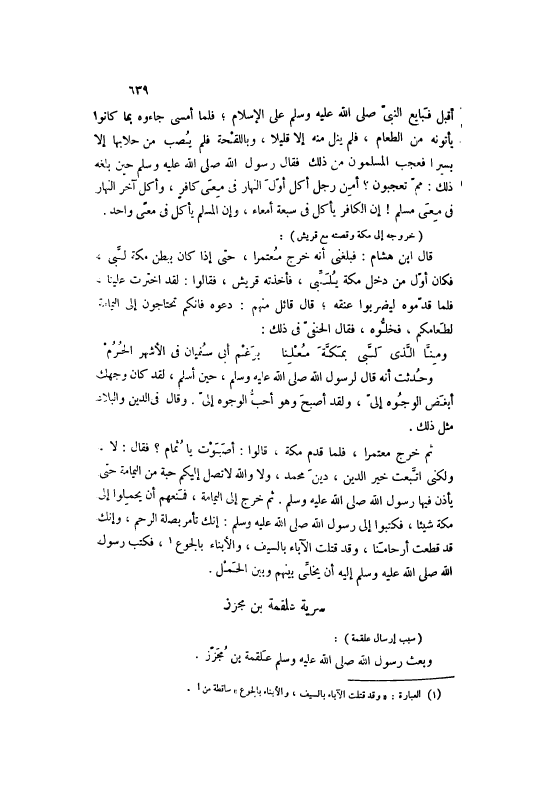 ٦٣٩
أقبل فبايع النبىّ صلى الله عليه وسلم على الإسلام ؛ فلما أمسى جاءوه بما كانوا
يأتونه من الطعام ، فلم ينل منه إلا قليلا ، وباللقْحة فلم يُصب من حلابها إلا
يسيرا فعجب المسلمون من ذلك فقال رسول الله صلى الله عليه وسلم حين بلغه
ذلك : ممّ تعجبون ؟ أمِن رجل أكل أوّلَ النهار فى مِعَى كافرٍ ، وأكل آخرَ النهار
فى مِعَى مسلم ! إن الكافر يأكل فى سبعة أمعاء ، وإن المسلم يأكل فى معًى واحد .
( خروجه إلى مكة وقصته مع قريش ) :
قال ابن هشام : فبلغنى أنه خرج مُعتمرا ، حتى إذا كان ببطن مكة لَبَّى ،
فكان أوّل من دخل مكة يُلَبِّى ، فأخذته قريش ، فقالوا : لقد اخترت علينا ،
فلما قدّموه ليضربوا عنقه ؛ قال قائل منهم : دعوه فانكم تحتاجون إلى اليمامة
لطَعامكم ، فخلُّوه ، فقال الحنفىّ فى ذلك :
ومِنَّا الَّذى لَبَّى بمَكَّةَ مُعْلِنا برَغْمِ أبى سُفيان فى الأشهر الحُرُمْ
وحُدثت أنه قال لرسول الله صلى الله عليه وسلم ، حين أسلم ، لقد كان وجهك
أبغضَ الوجُوه إلىّ ، ولقد أصبحَ وهو أحبُّ الوجوه إلىّ . وقال فى الدين والبلاد
مثل ذلك .
ثم خرج معتمرا ، فلما قدم مكة ، قالوا : أصَبَوْت يا ثُمام ؟ فقال : لا .
ولكنى اتَّبعت خير الدين ، دينَ محمد ، ولا والله لاتصل إليكم حبة من اليمامة حتى
يأذن فيها رسول الله صلى الله عليه وسلم . ثم خرج إلى اليمامة ، فمنعهم أن يحملوا إلى
مكة شيئا ، فكتبوا إلى رسول الله صلى الله عليه وسلم : إنك تأمر بصلة الرحم ، وإنك
قد قطعت أرحامنا ، وقد قتلت الآباء بالسيف ، والأبناء بالجوع ١ ، فكتب رسول
الله صلى الله عليه وسلم إليه أن يخلَّى بينهم وبين الحَمْل .
سرية علقمة بن مجزز
( سبب إرسال علقمة ) :
وبعث رسول الله صلى الله عليه وسلم عَلقمة بن مُجَزّز .
(١) العبارة : « وقد قتلت الآباء بالسيف ، والأبناء بالجوع » ساقطة من أ .